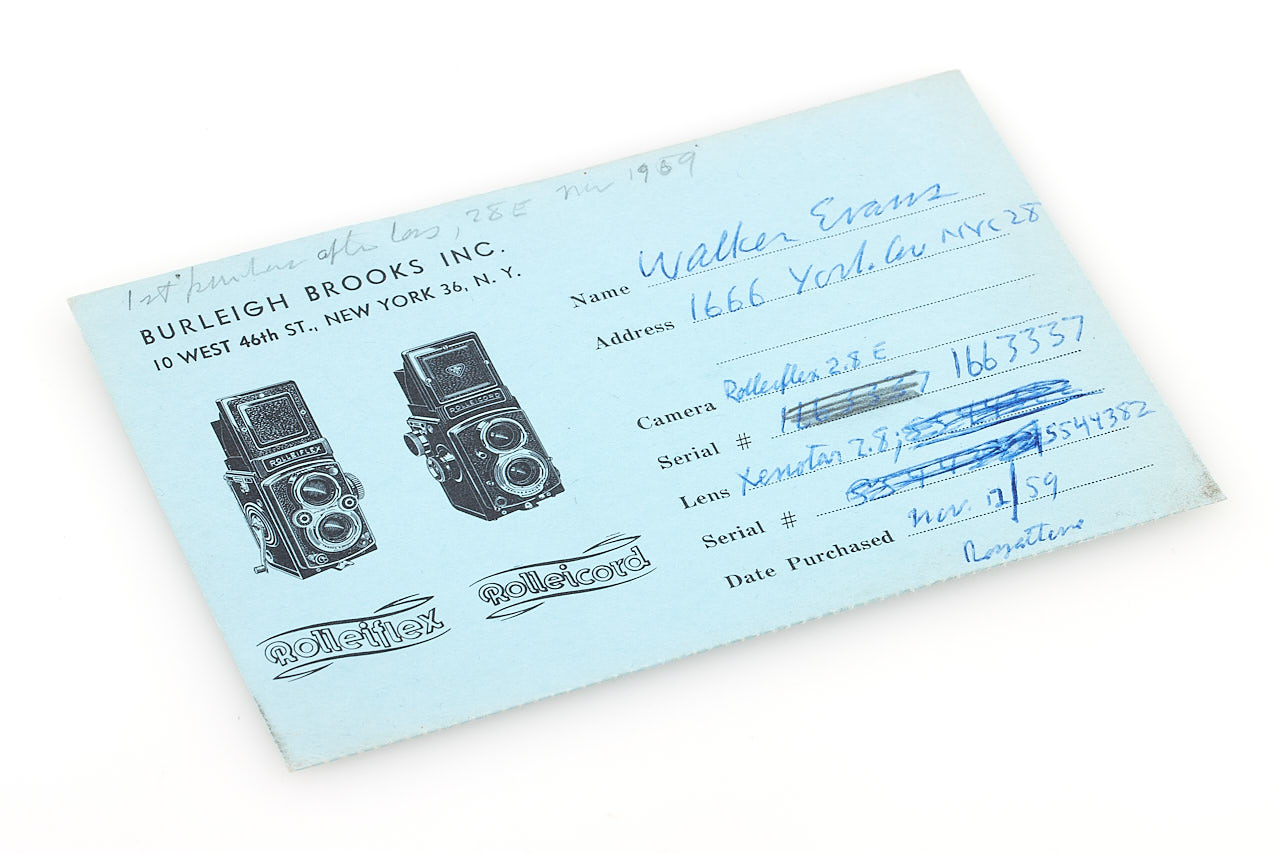 1st purchase after loss, 28E Nov 1959
BURLEIGH BROOKS INC.
10 WEST 46th ST., NEW YORK 36, N. Y.
ROLLEIFLEX
ROLLEICORD
Rolleiflex
Rolleicord
Name Walker Evans
Address 1666 York Av NYC 28
Camera Rolleiflex 2.8 E
Serial # 1663337
Lens Xenotar 2.8,
Serial # 5544382
Date Purchased Nov. 12/59